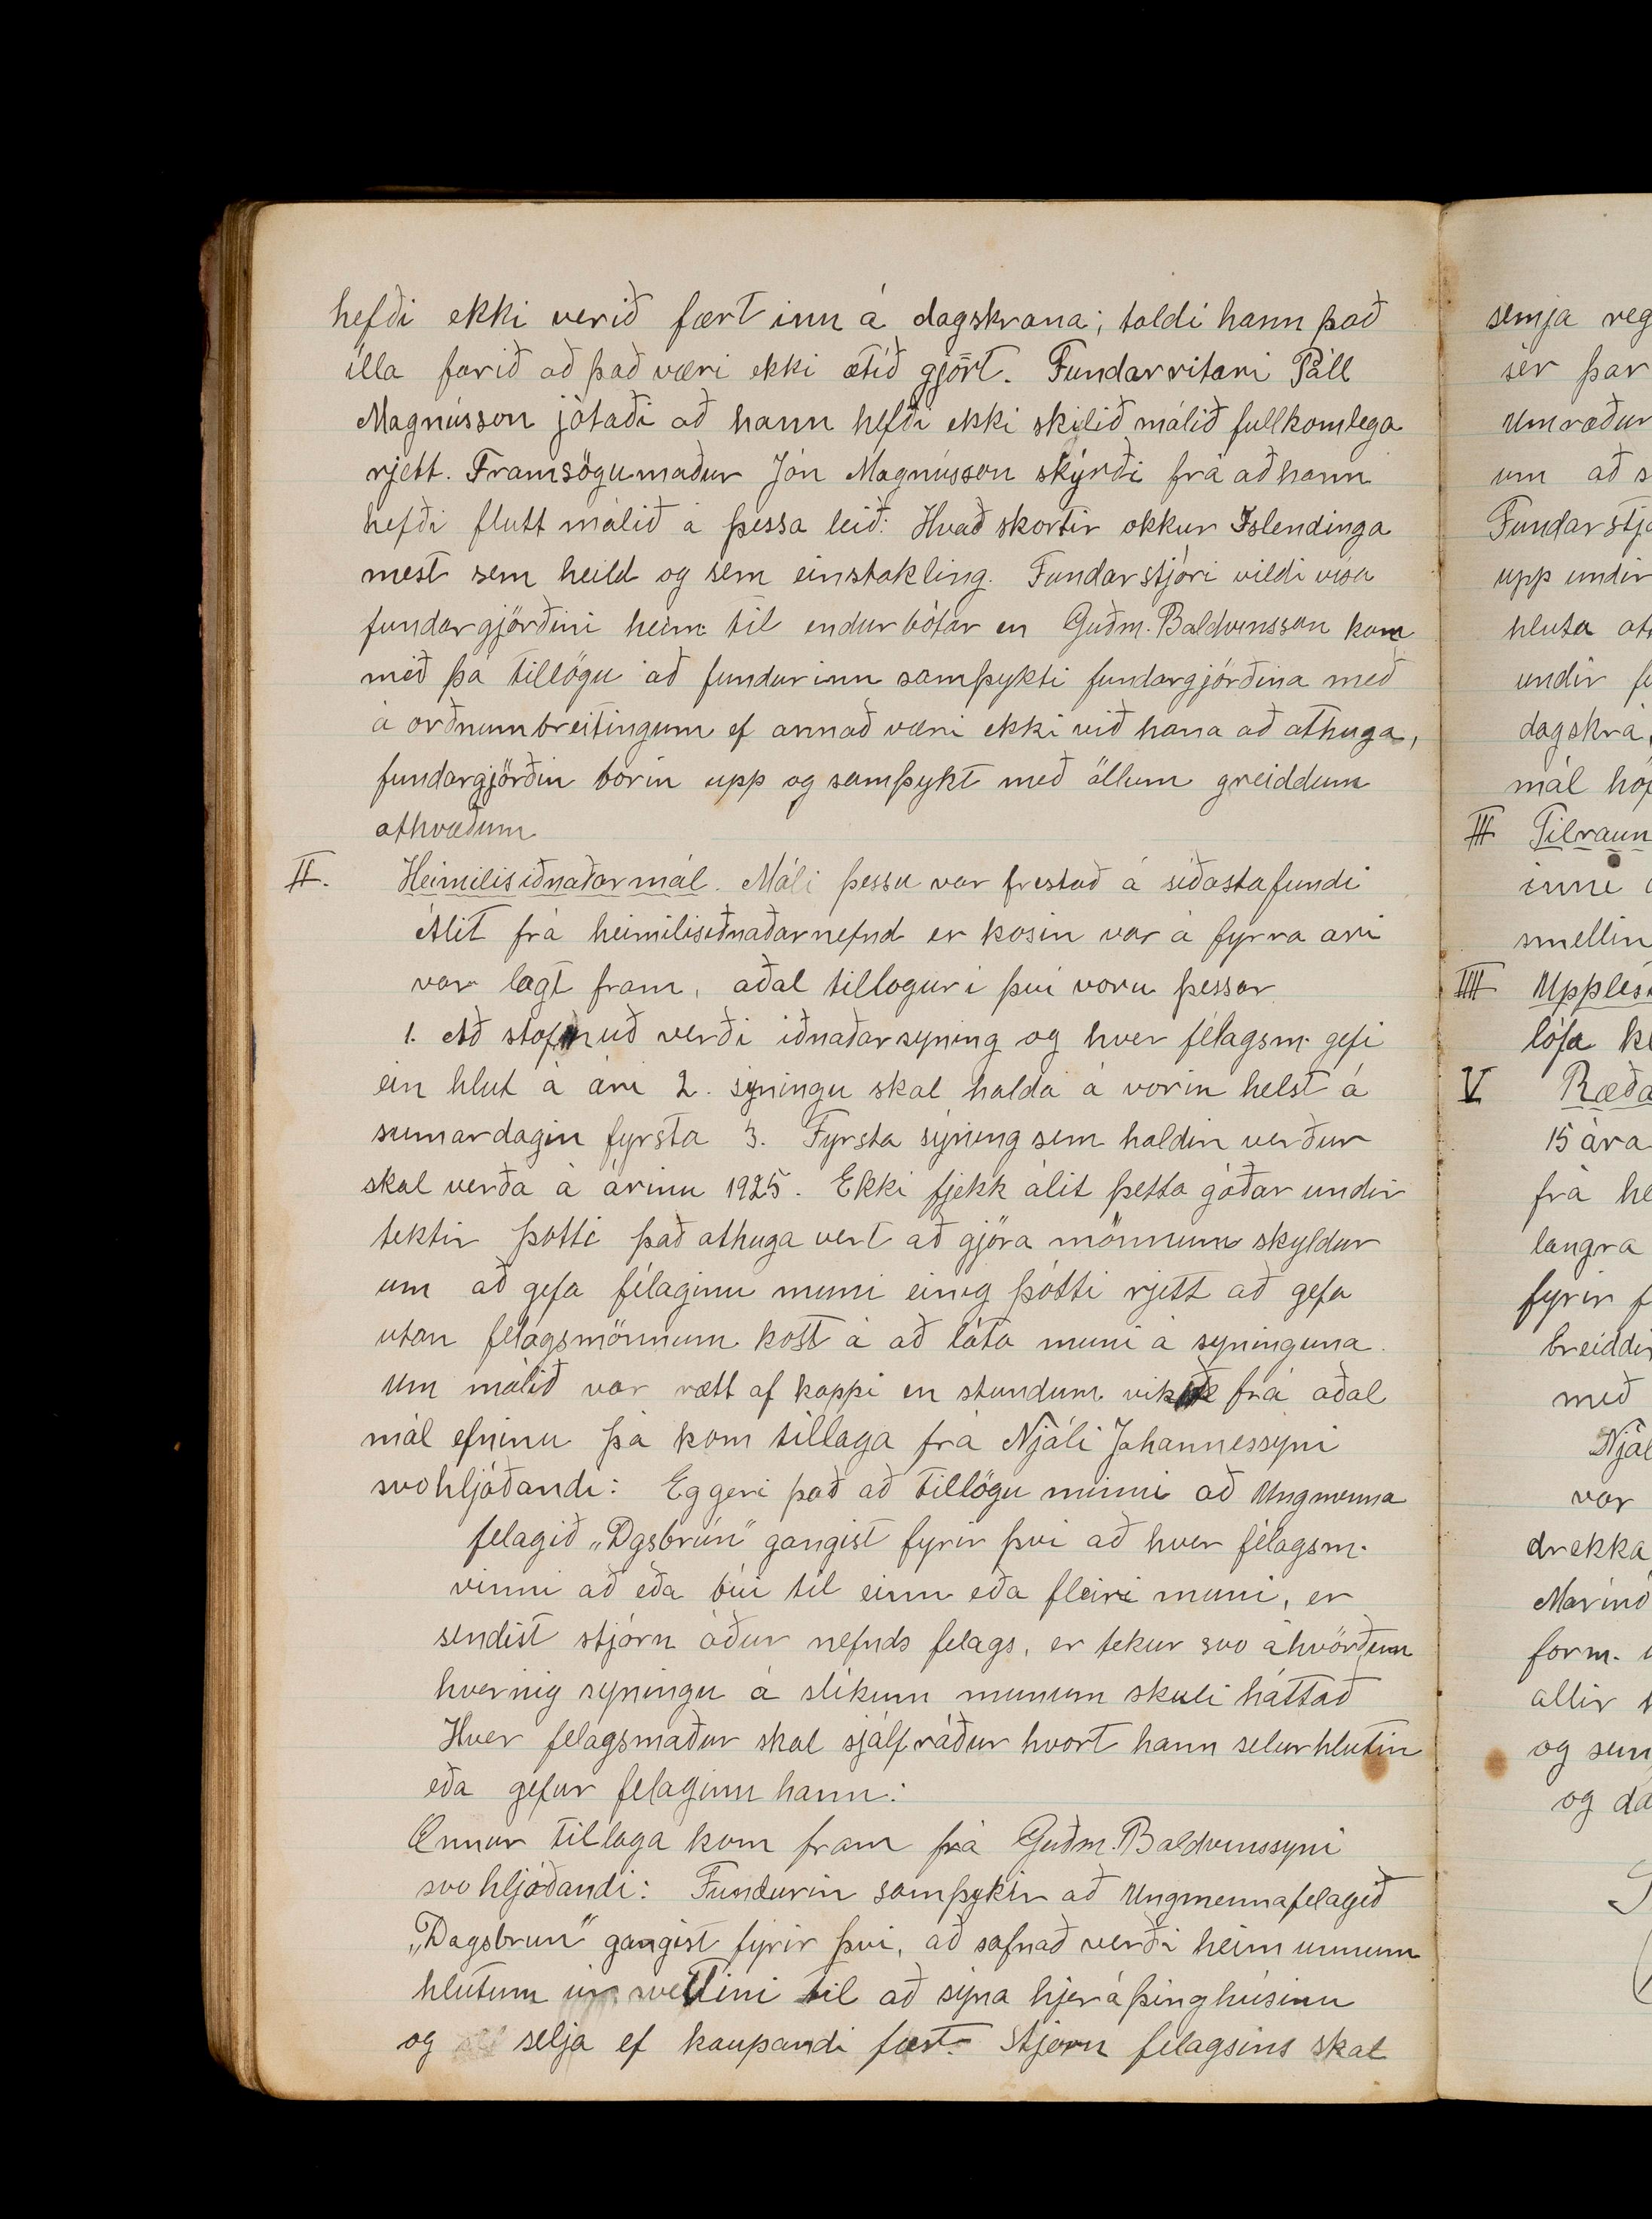 hefði ekki verið fært inn á dagskrana; taldi hann það
illa farið að það væri ekki ætíð gjört. Fundarritari Páll
Magnússon játaði að hann hefði ekki skilið málið fullkomlega
rjett. Framsögumaður Jón Magnússon skýrði frá að hann
hefði flutt málið á þessa leið: Hvað skortir okkur Íslendinga
mest sem heild og sem einstakling. Fundarstjóri vildi visa
fundargjörðini heim til endurbótar en Guðm. Baldvinsson kom
með þá tillögu að fundurinn samþykti fundargjörðina með
á orðnum breitingum ef annað væri ekki við hana að athuga,
fundargjörðin borin upp og samþykt með öllum greiddum
athvæðum
II. Heimilisiðnaðarmál. Máli þessu var frestað á siðasta fundi
Álit frá heimilisiðnaðarnefnd er kosin var á fyrra ari
var lagt fram, aðal tillogur i þvi voru þessar
1. Að stofnuð verði iðnaðarsyning og hver félagsm. gefi
ein hlut á ari 2. syningu skal halda á vorin helst á
sumardagin fyrsta 3. Fyrsta syning sem haldin verður
skal verða á árinu 1925. Ekki fjekk álit þetta góðar undir
tektir þotti það athuga vert að gjöra mönnum skyldur
um að gefa félaginu muni einig þótti rjett að gefa
utan felagsmönnum kost á að láta muni á syninguna.
Um málið var rætt af kappi en stundum vikið frá aðal
mál efninu þá kom tillaga frá Njáli Jóhannessyni
svohljóðandi: Eg geri það að tillögu minni að Ungmenna
felagið „Dgsbrún" gangist fyrir þvi að hver félagsm.
vinni að eða búi til einn eða fleiri muni, er
sendist stjórn áður nefnds felags, er tekur svo ákvörðun
hvernig syningu á slikum munum skuli háttað
Hver felagsmaður skal sjálfráður hvort hann selur hlutin
eða gefur felaginu hann.
Önnur tillaga kom fram frá Guðm. Baldvinssyni
svo hljóðandi: Fundurin samþykir að Ungmennafelagið
„Dagsbrun" gangist fyrir þvi, að safnað verði heim unnum
hlutum úr sveitini til að sýna hjer á þinghúsinu
og selja ef kaupandi fæst. Stjorn félagsins skal
semja reg
sér þar
Umræður
um að s
Fundarstjó
upp undir
hluta at
undir f
dagskrá,
mál höf
III Tilraun
inni
smellin
IIII Upples
lófa kl
V Ræða
15 ára
frá he
langra
fyrir f
breiddi
með
Njál
var
drekka
Marinó
form.
allir h
og sun
og da